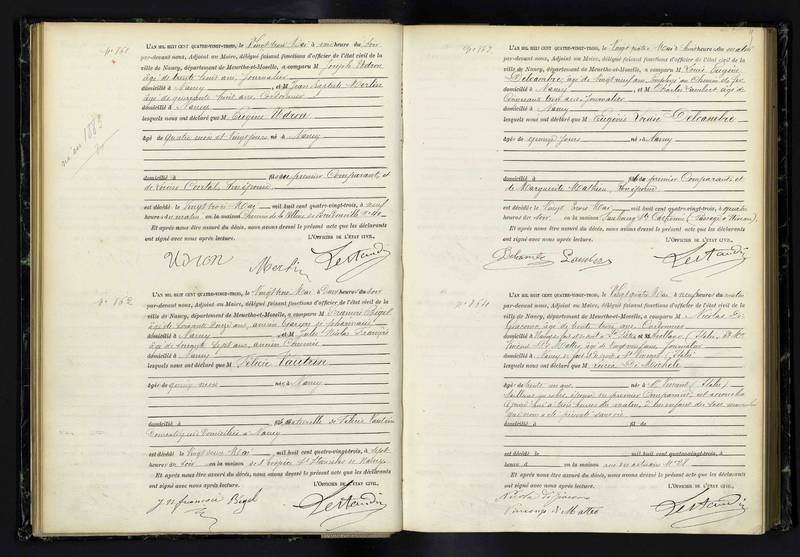 né an 1883
N° 861
L'AN MIL HUIT CENT QUATRE-VINGT-TROIS, le Vingt trois Mai à heure du soir
par-devant nous, Adjoint au Maire, délégué faisant fonctions d'officier de l'état civil de la
ville de Nancy, département de Meurthe-et-Moselle, a comparu M Joseph Udron
âgé de trente huit ans, Journalier
domicilié à Nancy et M Jean Baptiste Mertin
âgé de quarante huit ans, Cordonnier
domicilié à Nancy
lesquels nous ont déclaré que M Eugène Udron
âgé de quatre mois et Vingt jours né à Nancy
domicilié à fils du premier Comparant et
de
est décédé le Vingt trois Mai mil huit cent quatre-vingt-trois, à neuf
heures du matin en la maison
Et après nous être assuré du décès, nous avons dressé le présent acte que les déclarants
ont signé avec nous après lecture. L'OFFICIER DE L'ÉTAT CIVIL,
Udron Mertin Lestaudin
N° 862
L'AN MIL HUIT CENT QUATRE-VINGT-TROIS, le Vingt trois Mai à Deux heures du soir
par-devant nous, Adjoint au Maire, délégué faisant fonctions d'officier de l'état civil de la
ville de Nancy, département de Meurthe-et-Moselle, a comparu M François Bigel
âgé de Soixante ans, ancien Garçon de pharmacie
domicilié à Nancy et M Jules Nicolas François
âgé de Soixante Sept ans, ancien Commis
domicilié à Nancy
lesquels nous ont déclaré que M Félicie Vautrin
âgée de quinze mois née à Nancy
domicilié à fille naturelle de Félicie Vautrin
Domestique Domiciliée à Nancy
est décédé le Vingt deux Mai mil huit cent quatre-vingt-trois, à Sept
heures du Soir en la maison de l'hospice St Stanislas de Nancy
Et après nous être assuré du décès, nous avons dressé le présent acte que les déclarants
ont signé avec nous après lecture. L'OFFICIER DE L'ÉTAT CIVIL,
J N francois Bigel Lestaudin
N° 863
L'AN MIL HUIT CENT QUATRE-VINGT-TROIS, le Vingt quatre Mai à huit heures du matin
par-devant nous, Adjoint au Maire, délégué faisant fonctions d'officier de l'état civil de la
ville de Nancy, département de Meurthe-et-Moselle, a comparu M Louis Eugène
Delcambre, âgé de Vingt neuf ans, Employé au Chemin de fer
domicilié à Nancy et M Charles Lambert âgé de
ans, Journalier
domicilié à Nancy
lesquels nous ont déclaré que M Eugène Louis Delcambre
âgé de quinze jours né à Nancy
domicilié à fils du premier Comparant et
de Marguerite Mathieu,
est décédé le Vingt trois Mai mil huit cent quatre-vingt-trois, à quatre
heures du Soir en la maison Faubourg Ste Catherine
Et après nous être assuré du décès, nous avons dressé le présent acte que les déclarants
ont signé avec nous après lecture. L'OFFICIER DE L'ÉTAT CIVIL,
Delcambre Lambert Lestaudin
N° 864
L'AN MIL HUIT CENT QUATRE-VINGT-TROIS, le Vingt quatre Mai à neuf heures du matin
par-devant nous, Adjoint au Maire, délégué faisant fonctions d'officier de l'état civil de la
ville de Nancy, département de Meurthe-et-Moselle, a comparu M Nicolas Di
Giacomo, âgé de trente trois ans,
domicilié à (Italie), et M
Vincent Di Matteo, âgé de Vingt neuf ans, Journalier
domicilié à Nancy St Vincent (Italie)
lesquels nous ont déclaré que M Louisa Di Michele
âgée de trente un ans née à St Vincent (Italie)
épouse du premier Comparant, est accouchée
à trois heures du matin, d'un enfant du sexe masculin
qui nous a été présenté sans vie
domicilié à fil de
est décédé le mil huit cent quatre-vingt-trois, à
heure d en la maison N° 28
Et après nous être assuré du décès, nous avons dressé le présent acte que les déclarants
ont signé avec nous après lecture. L'OFFICIER DE L'ÉTAT CIVIL,
Nicola di Giacomo
Vincenzo di Matteo Lestaudin